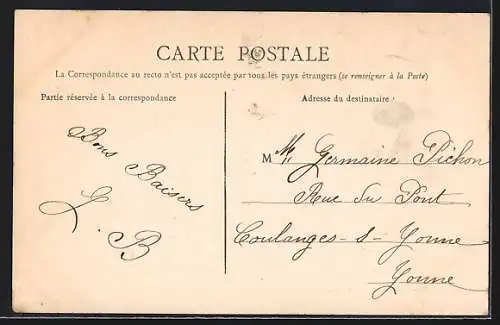 CARTE POSTALE
La Correspondance au recto n'est pas acceptée par tous les pays étrangers (se renseigner à la Poste)
Partie réservée à la correspondance
Adresse du destinataire
Bons
Baisers
L. B
M Germaine Pichon
Rue du Pont
Coulanges-s-Yonne
Yonne